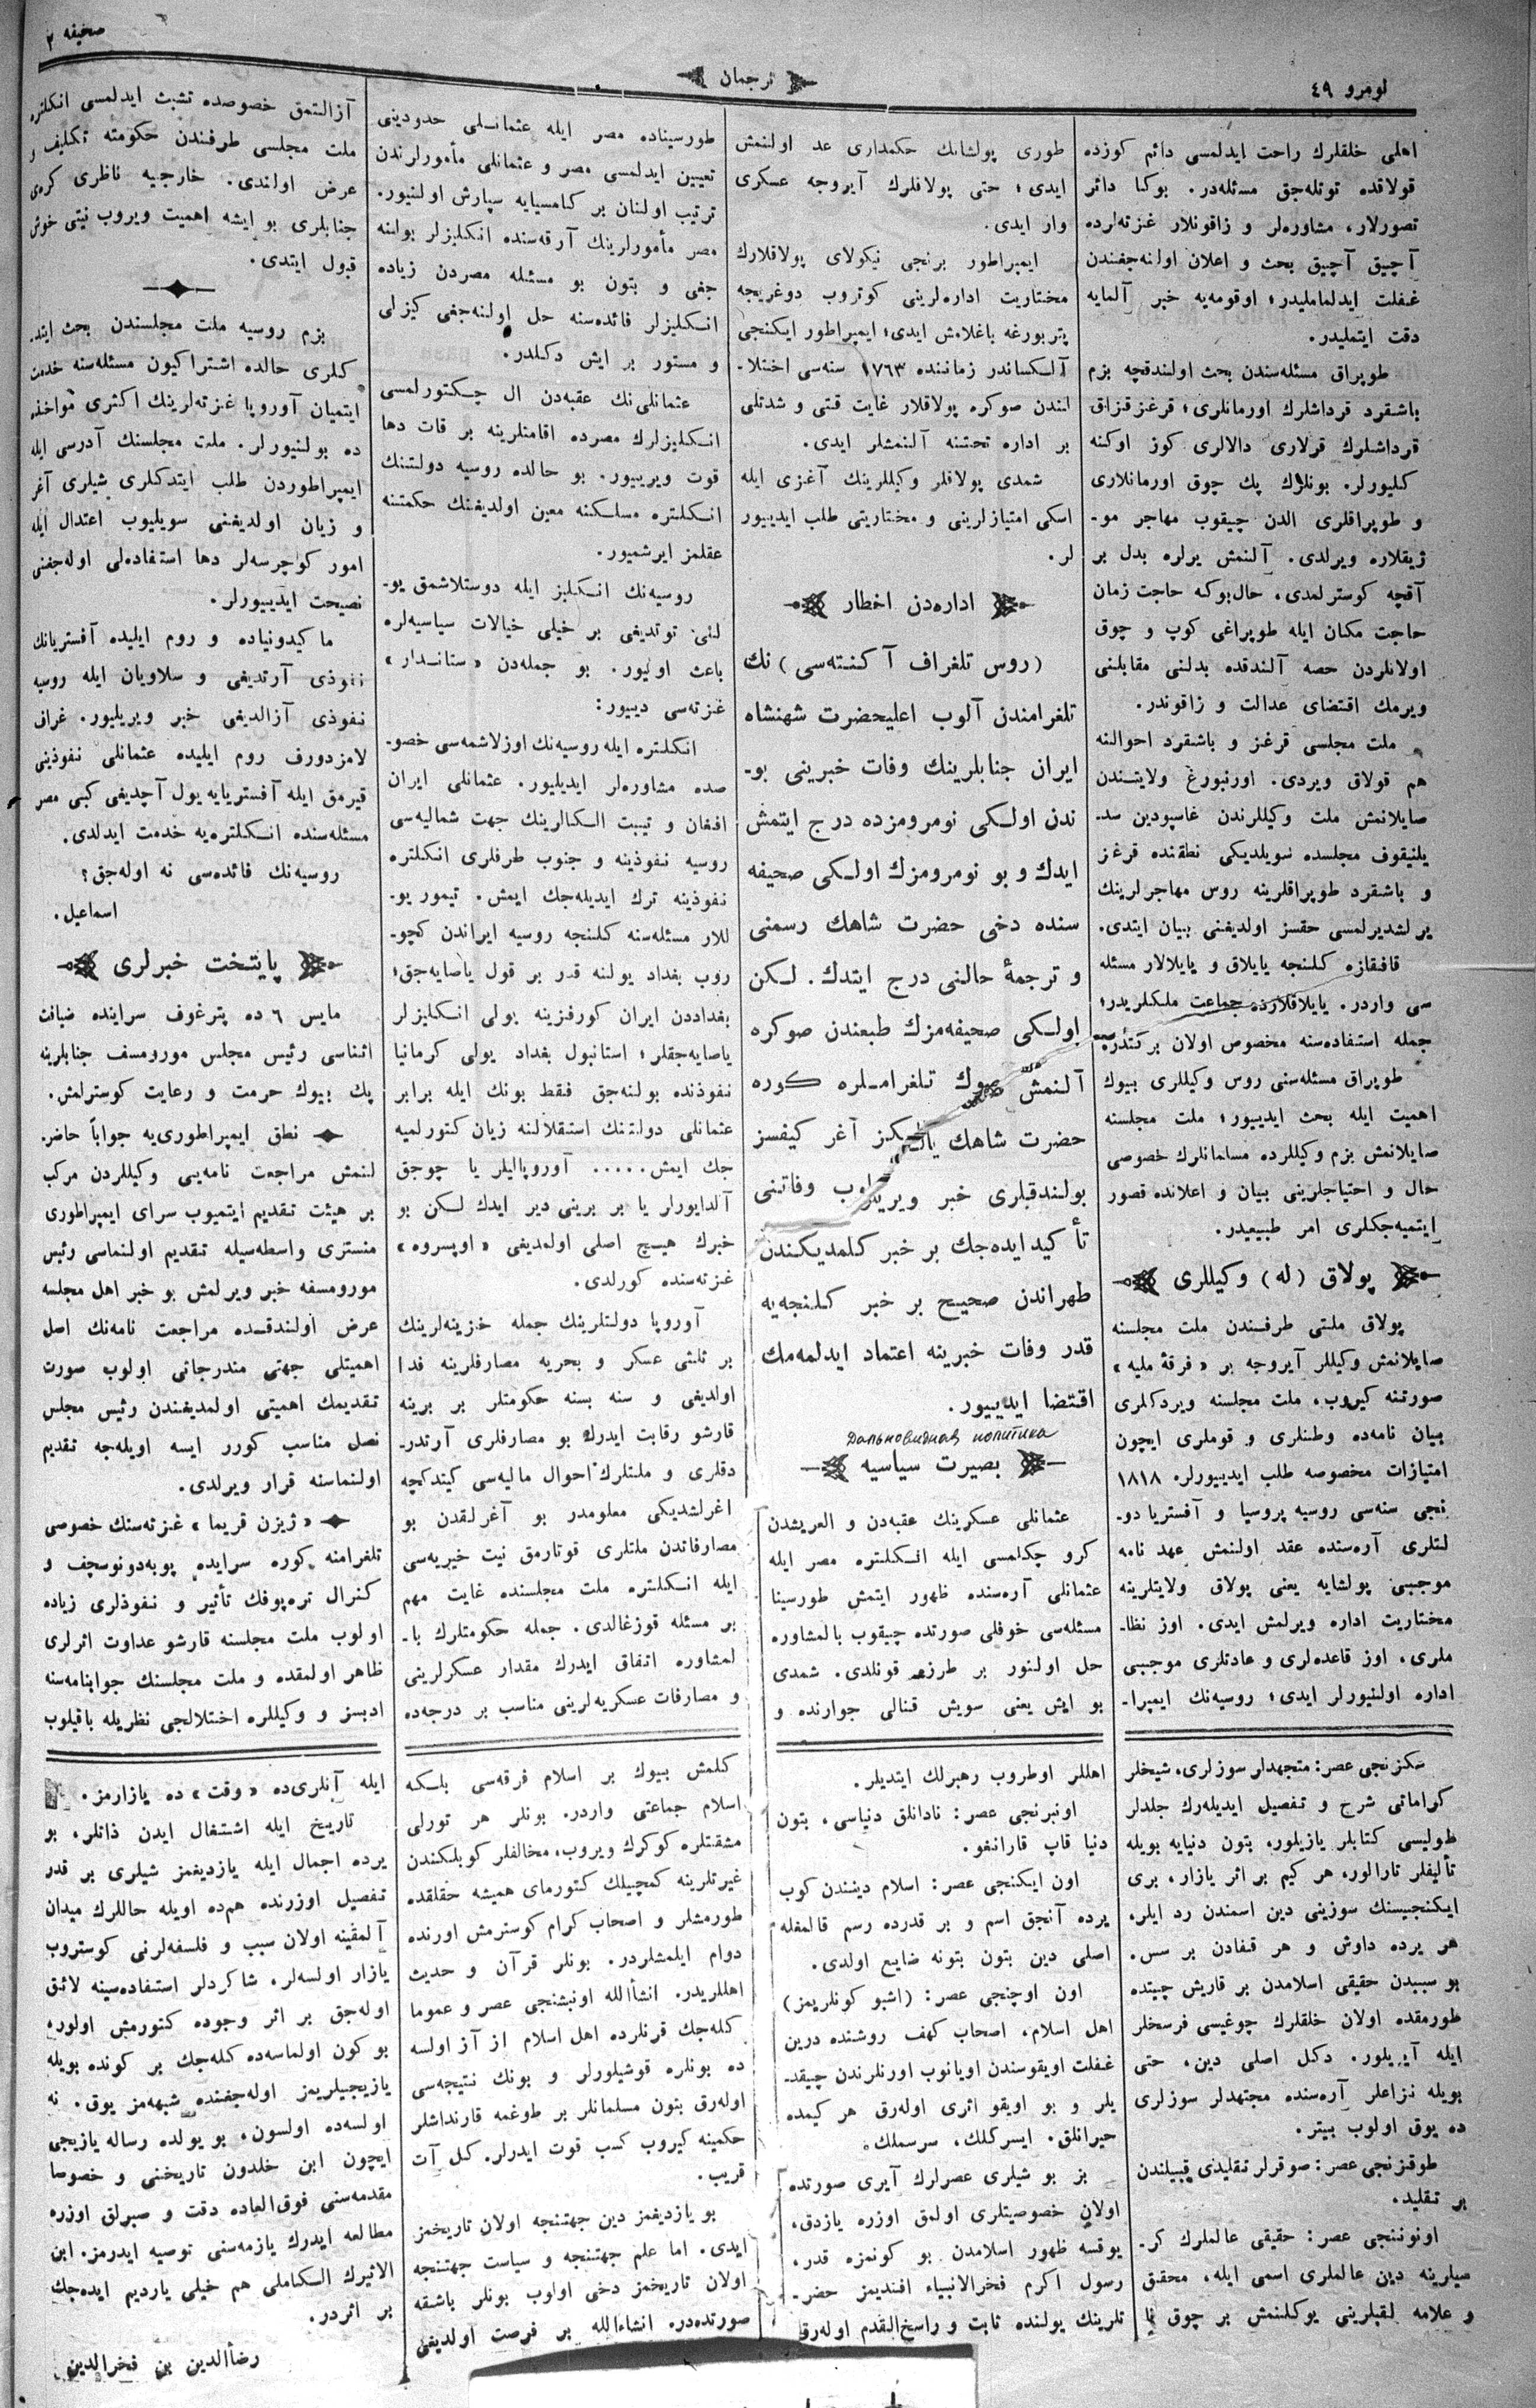 نومرو ٤٩
ترجمان
صحیفه ٢
اهلی خلقلرك راحت ایدلمسی دائم كوزده
قولاقده توتله‌جق مسئله‌در. بوكا دائر
تصورلار، مشاوره‌لر و زاقونلار غزته‌لرده
آچیق آچیق بحث و اعلان اولنه‌جغندن
غفلت ایدلماملیدر؛ اوقومه‌یه خبر آلمایه
دقت ایتملیدر.
طوپراق مسئله‌سندن بحث اولندقچه بزم
باشقرد قرداشلرك اورمانلری؛ قرغز قزاق
قرداشلرك قرلاری دالالری كوز اوكنه
كلیورلر. بونلرك پك چوق اورمانلاری
و طوپراقلری الدن چیقوب مهاجر مو-
ژیقلاره ویرلدی. آلنمش یرلره بدل بر
آقچه كوسترلمدی، حال‌بوكه حاجت زمان
حاجت مكان ایله طوپراغی كوپ و چوق
اولانلردن حصه آلندقده بدلنی مقابلنی
ویرمك اقتضای عدالت و زاقوندر.
ملت مجلسی قرغز و باشقرد احوالنه
هم قولاق ویردی. اورنبورغ ولایتندن
صایلانمش ملت وكیللرندن غاسپودین سد-
یلنیقوف مجلسده سویلدیكی نطقنده قرغز
و باشقرد طوپراقلرینه روس مهاجرلرینك
یرلشدیرلمسی حقسز اولدیغنی بیان ایتدی.
قافقازه كلنجه یایلاق و یایلالار مسئله
سی واردر. یایلاقلارده جماعت ملكلریدر؛
جمله استفاده‌سنه مخصوص اولان بركتدر.
طوپراق مسئله‌سنی روس وكیللری بیوك
اهمیت ایله بحث ایدییور؛ ملت مجلسنه
صایلانمش بزم وكیللرده مسلمانلرك خصوصی
حال و احتیاجلرینی بیان و اعلانده قصور
ایتمیه‌جكلری امر طبیعیدر.
پولاق (له) وكیللری
پولاق ملتی طرفندن ملت مجلسنه
صایلانمش وكیللر آیروجه بر «فرقهٔ ملیه»
صورتنه كیروب، ملت مجلسنه ویردكلری
بیان نامه‌ده وطنلری و قوملری ایچون
امتیازات مخصوصه طلب ایدییورلر. ١٨١٨
نجی سنه‌سی روسیه پروسیا و آفستریا دو-
لتلری آره‌سنده عقد اولنمش عهد نامه
موجبی پولشایه یعنی پولاق ولایتلرینه
مختاریت اداره ویرلمش ایدی. اوز نظا-
ملری، اوز قاعده‌لری و عادتلری موجبی
اداره اولنیورلر ایدی؛ روسیه‌نك ایمپرا-
طوری پولشانك حكمداری عد اولنمش
ایدی؛ حتی پولاقلرك آیروجه عسكری
وار ایدی.
ایمپراطور برنجی نیكولای پولاقلارك
مختاریت اداره‌لرینی كوتروب دوغریجه
پتربورغه باغلامش ایدی؛ ایمپراطور ایكنجی
آلكساندر زماننده ١٧٦٣ سنه‌سی اختلا-
لندن صوكره پولاقلار غایت قتی و شدتلی
بر اداره تحتنه آلنمشلر ایدی.
شمدی پولاقلر وكیللرینك آغزی ایله
اسكی امتیازلرینی و مختاریتی طلب ایدییور
لر.
اداره‌دن اخطار
(روس تلغراف آكنته‌سی) نك
تلغرامندن آلوب اعلیحضرت شهنشاه
ایران جنابلرینك وفات خبرینی بو-
ندن اولكی نومرومزده درج ایتمش
ایدك و بو نومرومزك اولكی صحیفه
سنده دخی حضرت شاهك رسمنی
و ترجمهٔ حالنی درج ایتدك. لكن
اولكی صحیفه‌مزك طبعندن صوكره
آلنمش صوك تلغراملره كوره
حضرت شاهك یالكز آغر كیفسز
بولندقلری خبر ویریلوب وفاتنی
تأكید ایده‌جك بر خبر كلمدیكندن
طهراندن صحیح بر خبر كلنجه‌یه
قدر وفات خبرینه اعتماد ایدلمه‌مك
اقتضا ایدییور.
Дальновидная политика
بصیرت سیاسیه
عثمانلی عسكرینك عقبه‌دن و العریشدن
كرو چكلمسی ایله انكلتره مصر ایله
عثمانلی آره‌سنده ظهور ایتمش طورسینا
مسئله‌سی خوفلی صورتده چیقوب بالمشاوره
حل اولنور بر طرزه قونلدی. شمدی
بو ایش یعنی سویش قنالی جوارنده و
طورسیناده مصر ایله عثمانلی حدودینی
تعیین ایدلمسی مصر و عثمانلی مأمورلرندن
ترتیب اولنان بر كامسیایه سپارش اولنیور.
مصر مأمورلرینك آرقه‌سنده انكلیزلر بولنه
جغی و بتون بو مسئله مصردن زیاده
انكلیزلر فائده‌سنه حل اولنه‌جغی كیزلی
و مستور بر ایش دكلدر.
عثمانلی‌نك عقبه‌دن ال چكتورلمسی
انكلیزلرك مصرده اقامتلرینه بر قات دها
قوت ویرییور. بو حالده روسیه دولتنك
انكلتره مسلكنه معین اولدیغنك حكمتنه
عقلمز ایرشمیور.
روسیه‌نك انكلیز ایله دوستلاشمق یو-
لنی توتدیغی بر خیلی خیالات سیاسیه‌لره
باعث اولیور. بو جمله‌دن «ستاندار»
غزته‌سی دییور:
انكلتره ایله روسیه‌نك اوزلاشمه‌سی خصو-
صده مشاوره‌لر ایدیلیور. عثمانلی ایران
افغان و تیبت الكالرینك جهت شمالیه‌سی
روسیه نفوذینه و جنوب طرفلری انكلتره
نفوذینه ترك ایدیله‌جك ایمش. تیمور یو-
للار مسئله‌سنه كلنجه روسیه ایراندن كچو-
روب بغداد یولنه قدر بر قول یاصایه‌جق؛
بغداددن ایران كورفزینه یولی انكلیزلر
یاصایه‌جقلر؛ استانبول بغداد یولی كرمانیا
نفوذنده بولنه‌جق فقط بونك ایله برابر
عثمانلی دولتنك استقلالنه زیان كتورلمیه
جك ایمش..... آوروپالیلر یا چوجق
آلدایورلر یا بر برینی دیر ایدك لكن بو
خبرك هیچ اصلی اولمدیغی «اوبسروه»
غزته‌سنده كورلدی.
آوروپا دولتلرینك جمله خزینه‌لرینك
بر ثلثی عسكر و بحریه مصارفلرینه فدا
اولدیغی و سنه بسنه حكومتلر بر برینه
قارشو رقابت ایدرك بو مصارفلری آرتدر-
دقلری و ملتلرك احوال مالیه‌سی كیتدكچه
اغرلشدیكی معلومدر بو آغرلقدن بو
مصارفاتدن ملتلری قوتارمق نیت خیریه‌سی
ایله انكلتره ملت مجلسنده غایت مهم
بر مسئله قوزغالدی. جمله حكومتلرك با-
لمشاوره اتفاق ایدرك مقدار عسكرلرینی
و مصارفات عسكریه‌لرینی مناسب بر درجه‌ده
آزالتمق خصوصده تشبث ایدلمسی انكلتره
ملت مجلسی طرفندن حكومته تكلیف و
عرض اولندی. خارجیه ناظری كره‌ی
جنابلری بو ایشه اهمیت ویروب نیتی خوش
قبول ایتدی.
بزم روسیه ملت مجلسندن بحث ایتد
كلری حالده اشتراكیون مسئله‌سنه خدمت
ایتمیان آوروپا غزته‌لرینك اكثری مواخذه
ده بولنیورلر. ملت مجلسنك آدرسی ایله
ایمپراطوردن طلب ایتدكلری شیلری آغر
و زیان اولدیغنی سویلیوب اعتدال ایله
امور كوچرسه‌لر دها استفاده‌لی اوله‌جغنی
نصیحت ایدییورلر.
ماكیدونیاده و روم ایلیده آفستریانك
نفوذی آرتدیغی و سلاویان ایله روسیه
نفوذی آزالدیغی خبر ویریلیور. غراف
لامزدورف روم ایلیده عثمانلی نفوذینی
قیرمق ایله آفستریایه یول آچدیغی كبی مصر
مسئله‌سنده انكلتره‌یه خدمت ایدلدی.
روسیه‌نك فائده‌سی نه اوله‌جق؟
اسماعیل.
پایتخت خبرلری
مایس ٦ ده پترغوف سراینده ضیافت
اثناسی رئیس مجلس مورومسف جنابلرینه
پك بیوك حرمت و رعایت كوسترلمش.
نطق ایمپراطوری‌یه جواباً حاضر-
لنمش مراجعت نامه‌یی وكیللردن مركب
بر هیئت تقدیم ایتمیوب سرای ایمپراطوری
منستری واسطه‌سیله تقدیم اولنماسی رئیس
مورومسفه خبر ویرلمش بو خبر اهل مجلسه
عرض اولندقده مراجعت نامه‌نك اصل
اهمیتلی جهتی مندرجاتی اولوب صورت
تقدیمك اهمیتی اولمدیغندن رئیس مجلس
نصل مناسب كورر ایسه اویله‌جه تقدیم
اولنماسنه قرار ویرلدی.
«ژیزن قریما» غزته‌سنك خصوصی
تلغرامنه كوره سرایده پوبه‌دونوسچف و
كنرال تره‌پوفك تأثیر و نفوذلری زیاده
اولوب ملت مجلسنه قارشو عداوت اثرلری
ظاهر اولمقده و ملت مجلسنك جوابنامه‌سنه
ادبسز و وكیللره اختلالجی نظریله باقیلوب
سكزنجی عصر: متجهدلر سوزلری، شیخلر
كراماتی شرح و تفصیل ایدیله‌رك جلدلر
طولیسی كتابلر یازیلور، بتون دنیایه بویله
تألیفلر تارالور، هر كیم بر اثر یازار، بری
ایكنجیسنك سوزینی دین اسمندن رد ایلر،
هر یرده داوش و هر قفادن بر سس.
بو سببدن حقیقی اسلامدن بر قاریش چیتده
طورمقده اولان خلقلرك چوغیسی فرسخلر
ایله آیریلور. دكل اصلی دین، حتی
بویله نزاعلر آره‌سنده مجتهدلر سوزلری
ده یوق اولوب بیتر.
طوقزنجی عصر: صوقرلر تقلیدی قبیلندن
بر تقلید.
اونوننجی عصر: حقیقی عالملرك كر-
سیلرینه دین عالملری اسمی ایله، محقق
و علامه لقبلرینی یوكلنمش بر چوق نا
اهللر اوطروب رهبرلك ایتدیلر.
اونبرنجی عصر: نادانلق دنیاسی، بتون
دنیا قاپ قارانغو.
اون ایكنجی عصر: اسلام دینندن كوب
یرده آنجق اسم و بر قدرده رسم قالمغله
اصلی دین بتون بتونه ضایع اولدی.
اون اوچنجی عصر: (اشبو كونلریمز)
اهل اسلام، اصحاب كهف روشنده درین
غفلت اویقوسندن اویانوب اورنلرندن چیقد-
یلر و بو اویقو اثری اوله‌رق هر كیمده
حیرانلق. ایسركلك، سرسملك.
بز بو شیلری عصرلرك آیری صورتده
اولان خصوصیتلری اولمق اوزره یازدق،
یوقسه ظهور اسلامدن بو كونمزه قدر،
رسول اكرم فخرالانبیاء افندیمز حضر-
تلرینك یولنده ثابت و راسخ‌القدم اوله‌رق
كلمش بیوك بر اسلام فرقه‌سی بلكه
اسلام جماعتی واردر. بونلر هر تورلی
مشقتلره كوكرك ویروب، مخالفلر كوبلكندن
غیرتلرینه كمچیلك كتورمای همیشه حقلقده
طورمشلر و اصحاب كرام كوسترمش اورنده
دوام ایلمشلردر. بونلر قرآن و حدیث
اهللریدر. انشأالله اونبشنجی عصر و عموما
كله‌جك قرنلرده اهل اسلام از آز اولسه
ده بونلره قوشیلورلر و بونك نتیجه‌سی
اوله‌رق بتون مسلمانلر بر طوغمه قارنداشلر
حكمینه كیروب كسب قوت ایدرلر. كل آت
قریب.
بو یازدیغمز دین جهتنجه اولان تاریخمز
ایدی. اما علم جهتنجه و سیاست جهتنجه
اولان تاریخمز دخی اولوب بونلر باشقه
صورتده‌در. انشاءالله بر فرصت اولدیغی
ایله آنلری‌ده «وقت» ده یازارمز.
تاریخ ایله اشتغال ایدن ذاتلر، بو
یرده اجمال ایله یازدیغمز شیلری بر قدر
تفصیل اوزرنده هم‌ده اویله حاللرك میدان
آلمقینه اولان سبب و فلسفه‌لرنی كوستروب
یازار اولسه‌لر. شاكردلر استفاده‌سینه لائق
اوله‌جق بر اثر وجوده كتورمش اولور،
بو كون اولماسه‌ده كله‌جك بر كونده بویله
یازیجیلریمز اوله‌جغنده شبهه‌مز یوق. نه
اولسه‌ده اولسون، بو یولده رساله یازیجی
ایچون ابن خلدون تاریخنی و خصوصا
مقدمه‌سنی فوق‌العاده دقت و صبرلق اوزره
مطالعه ایدرك یازمه‌سنی توصیه ایدرمز. ابن
الاثیرك الكاملی هم خیلی یاردیم ایده‌جك
بر اثردر.
رضاٴالدین بن فخرالدین